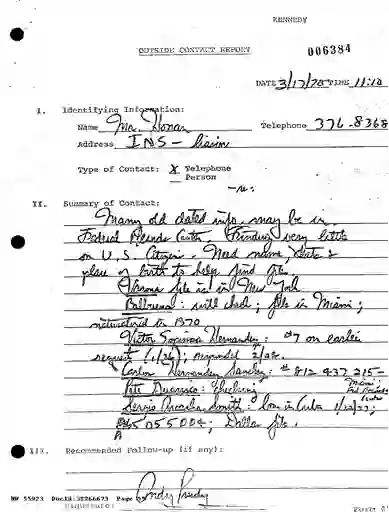 KENNEDY
OUTSIDE CONTACT REPORT
006384
DATE 3/17/78 TIME 11:10
I. Identifying Information:
Name Mr. Honan Telephone 376-8368
Address INS - liaison
Type of Contact: X Telephone
Person
II. Summary of Contact:
Many old dated info. may be in
Federal Records Center. Finding very little
on U.S. Citizens. Need name, date &
place of birth to help find file.
Varona file is in New York
: will check; file in Miami;
naturalized in 1970
Victor Hernandez: #7 on earlier
request (1/26); responded 2/28.
Carlos Hernandez Sanchez: #812 437 215-
Miami;
: checking
Sergio Arcacha Smith: born in Cuba 1/22/23;
055 004; Dallas file.
III. Recommended Follow-up (if any):
Andy Purdy
NW 55923 DocId: Page
Signature: